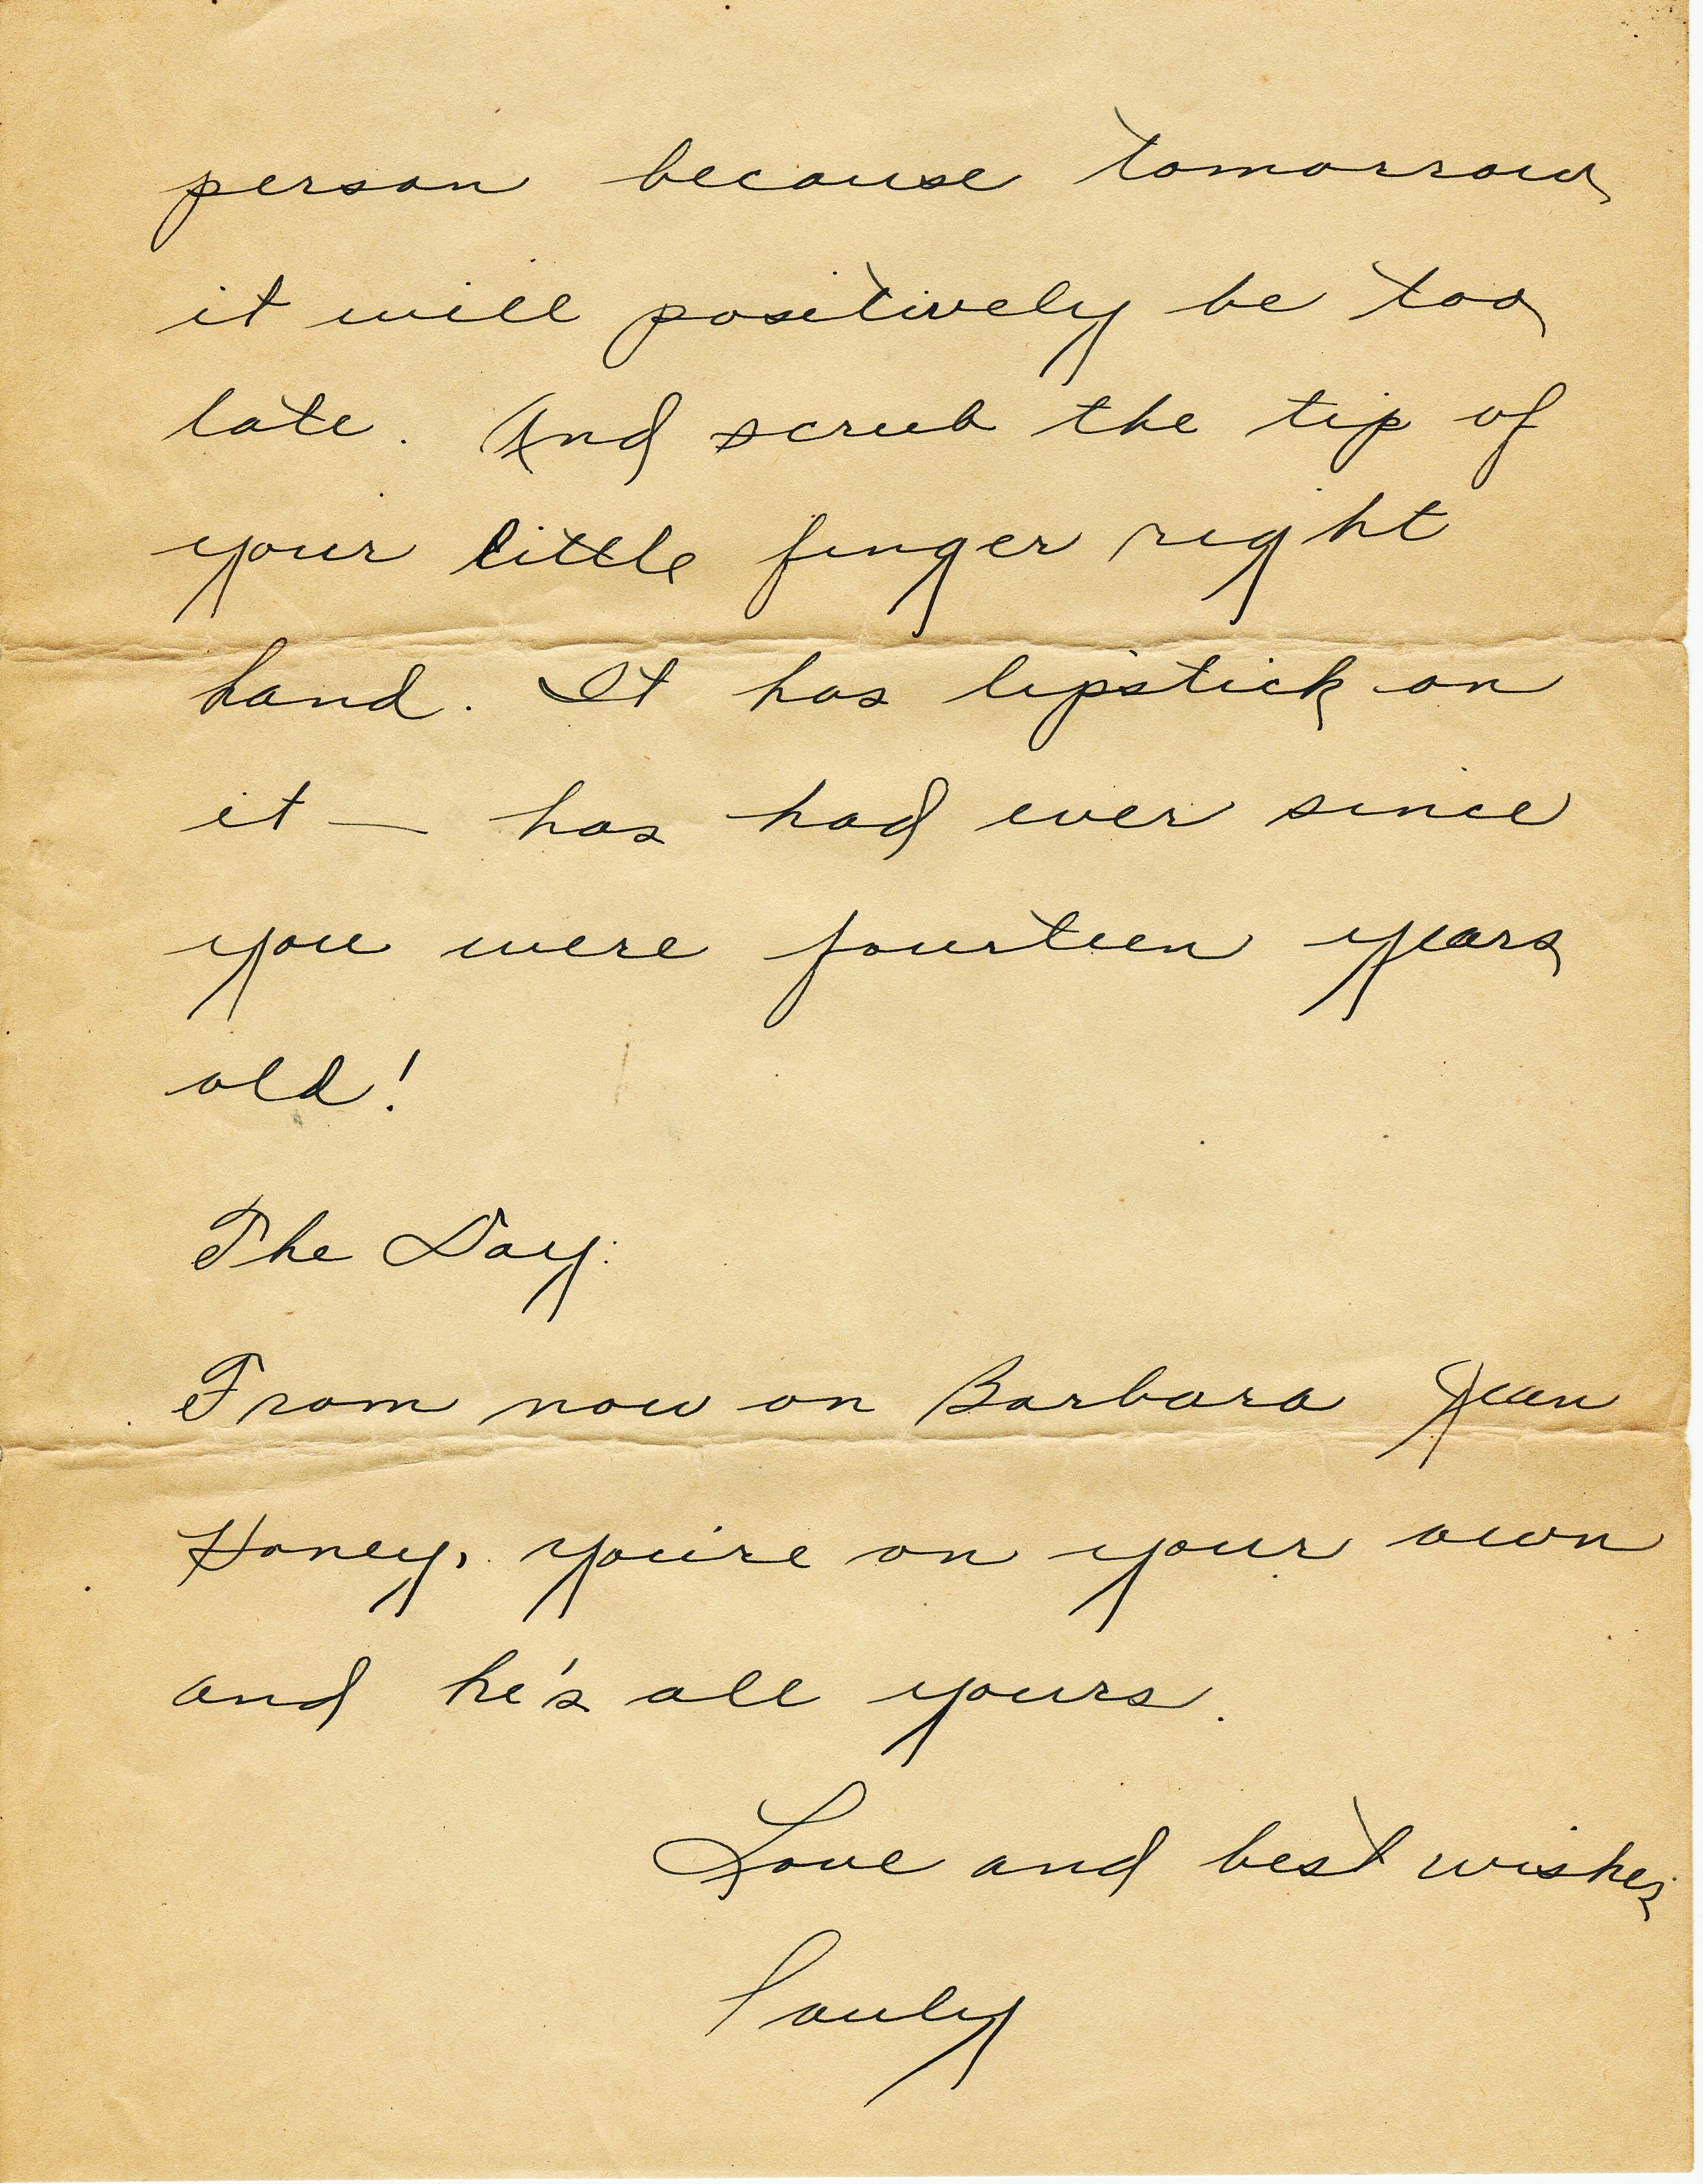 person because tomorrow
it will positively be too
late. And scrub the tip of
your little finger right
hand. It has lipstick on
it — has had ever since
you were fourteen years
old!
The Day:
From now on Barbara Jean
Honey, you're on your own
and he's all yours.
Love and best wishes
Pauly